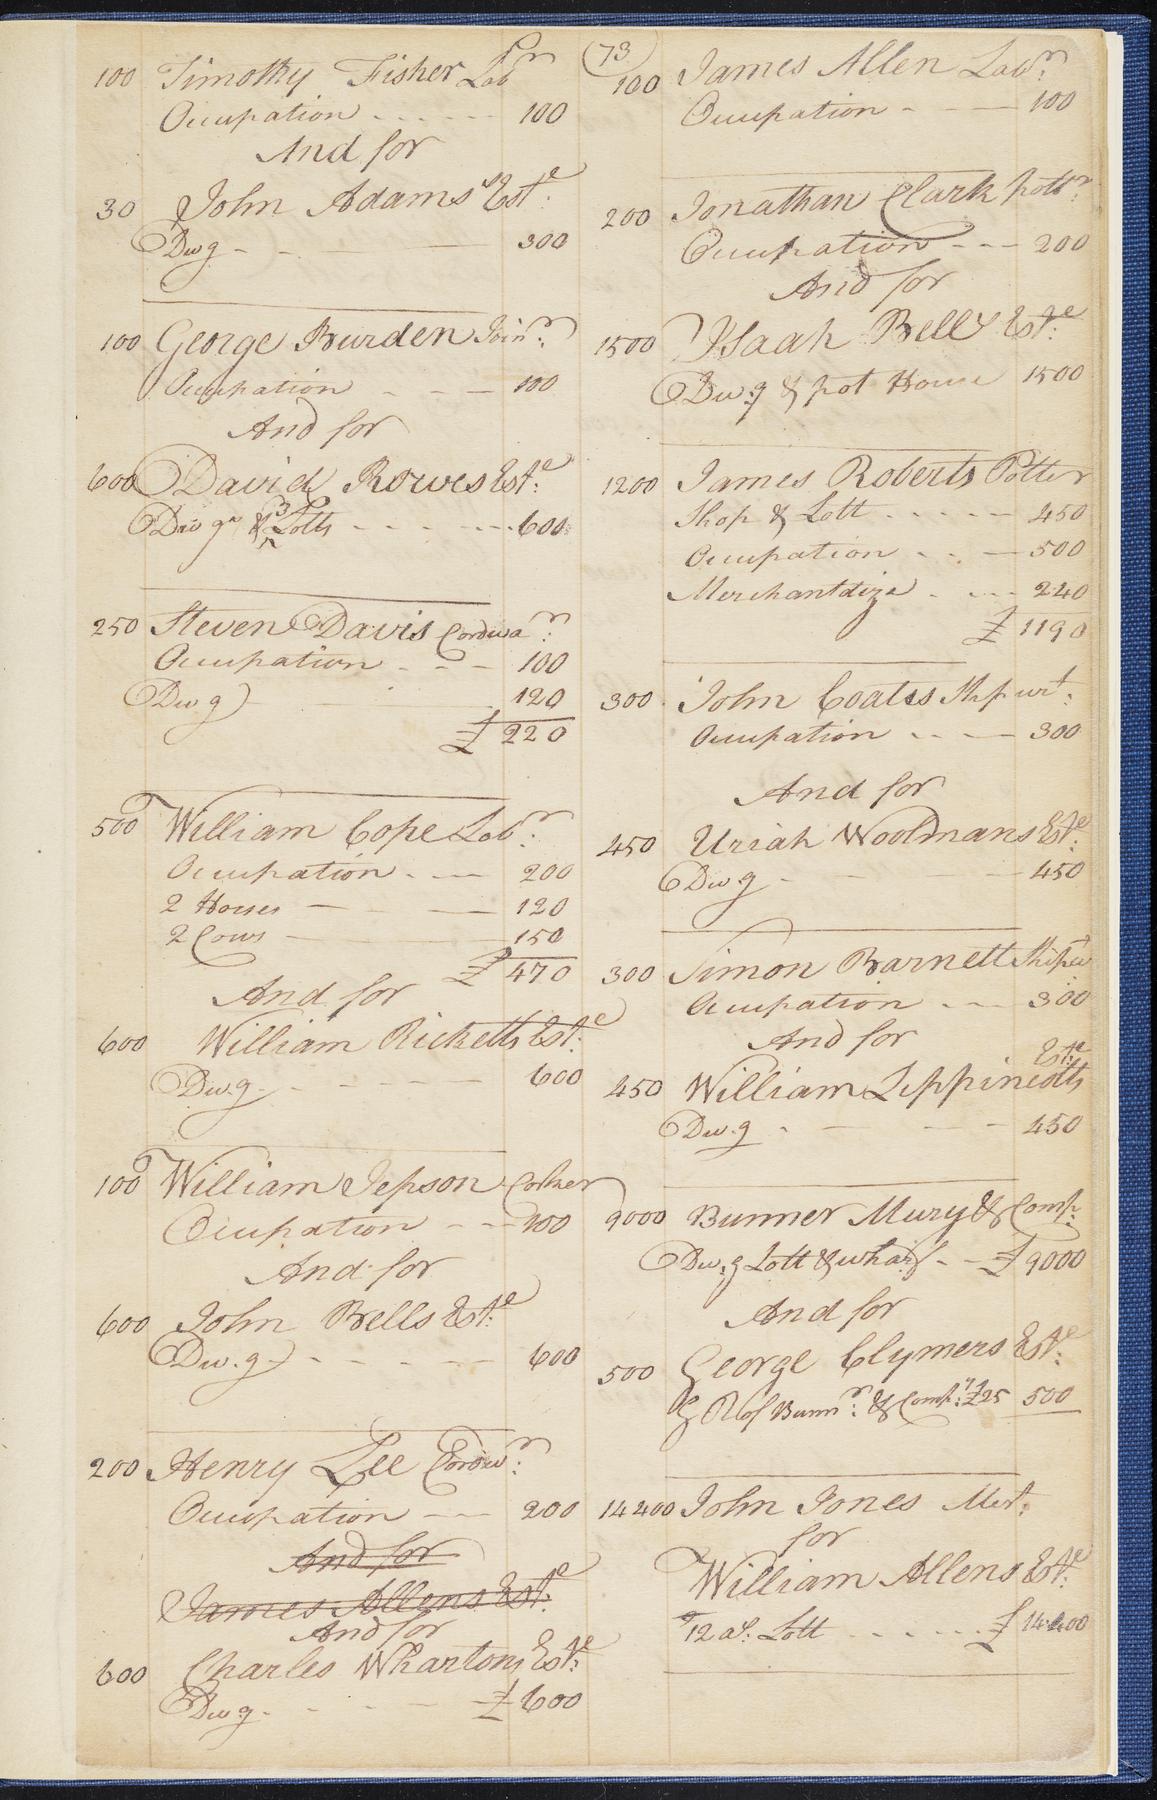 (73)
100 Timothy Fisher Labr
Occupation 100
And for
30 John Adams's Este
Dwg 300
100 George Burden Joinr
Occupation 100
And for
600 David Rowes Este
Dwgs & 3 Lotts 600
250 Steven Davis Cordwar
Occupation 100
Dwg 120
£ 220
500 William Cope Labr
Occupation 200
2 Horses 120
2 Cows 150
£ 470
And for
600 William Ricketts Este
Dwg 600
100 William Jepson Corker
Occupation 100
And for
600 John Bells Este
Dwg 600
200 Henry Lee Cordwr
Occupation 200
And for
James Allens Este
And for
600 Charles Whartons Este
Dwg £ 600
100 James Allen Labr
Occupation 100
200 Jonathan Clark pottr
Occupation 200
And for
1500 Isaah Bells Este
Dwg & pot House 1500
1200 James Roberts Potter
Shop & Lott 450
Occupation 500
Merchantdize 240
£ 1190
300 John Coates Shp wt
Occupation 300
And for
450 Uriah Wooldmans Este
Dwg 450
300 Simon Barnett Shipw
Occupation 300
And for
Este
450 William Lippincotts
Dwg 450
9000 Bunner Mury & Comp
Dwg Lott & wharf £ 9000
And for
500 George Clymers Este
G R of Bunnr & Comp £25 500
14400 John Jones Mert
for
William Allens Este
12 as. Lott £ 14400